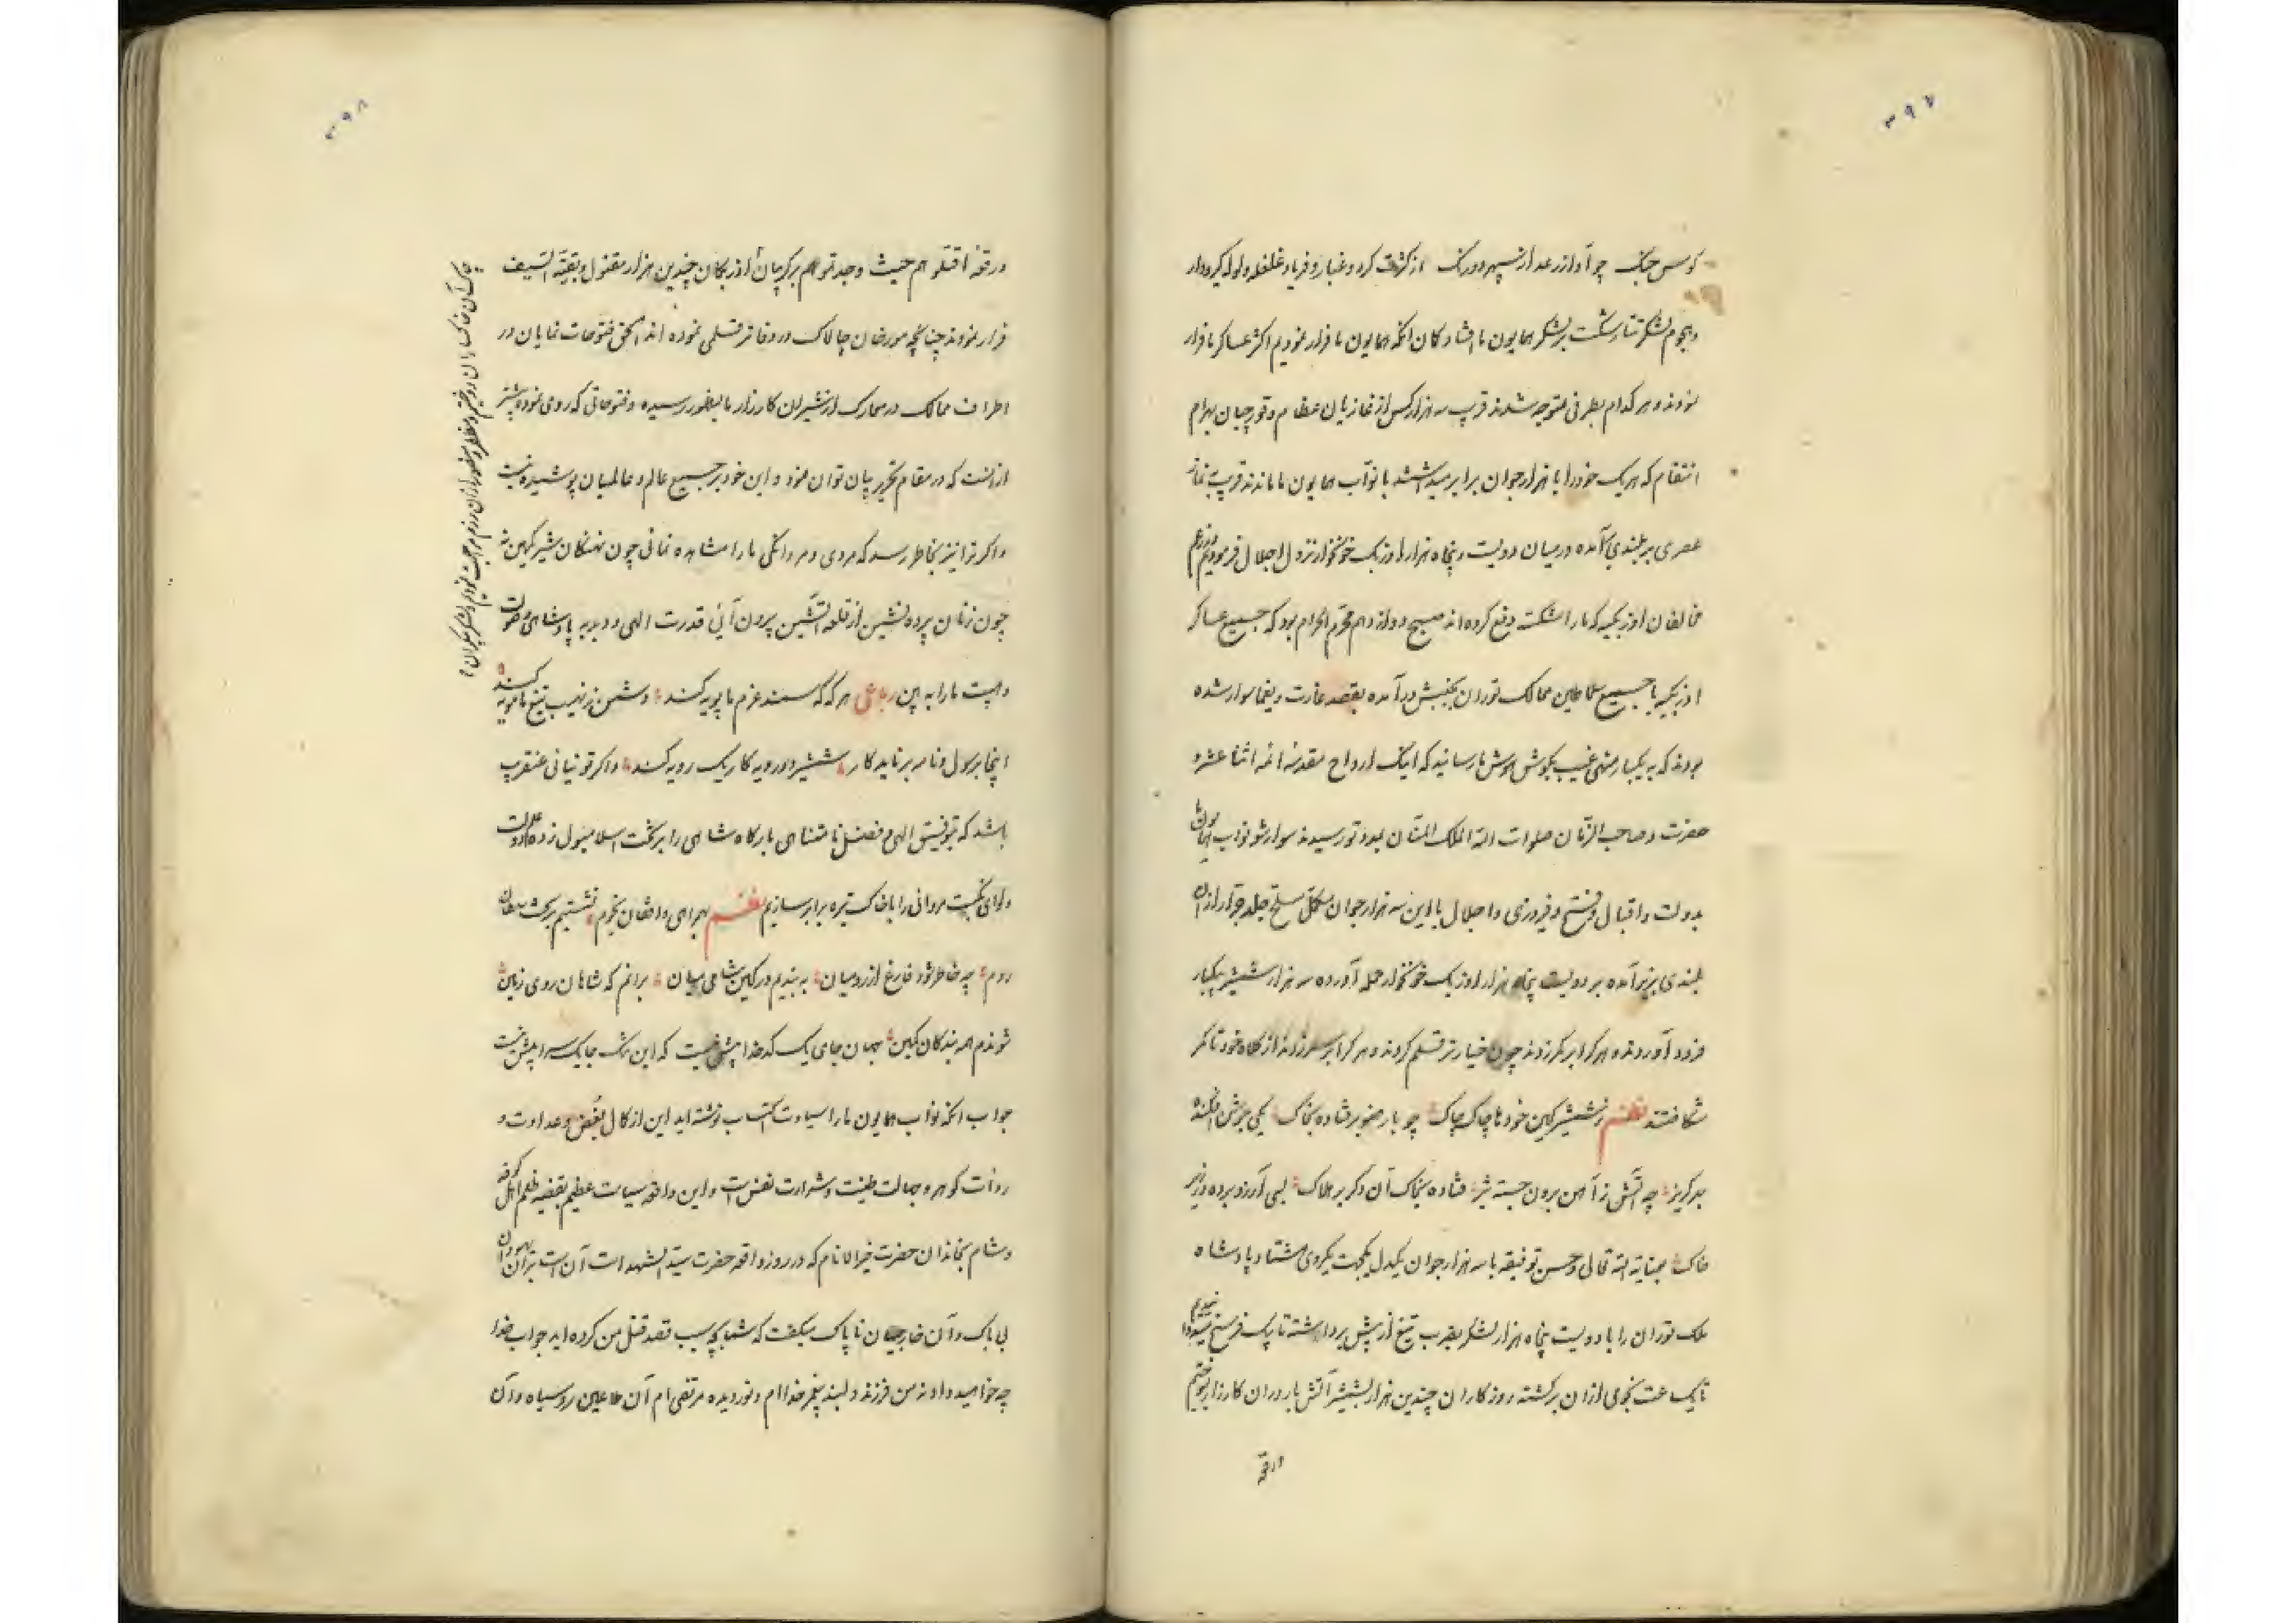 ۳۹۷
کوس جنک چو آواز رعد از سپهر دورنک از کثرت کرد و غبار و فریاد و غلغله و ولوله کیر و دار
و هجوم لشکر تتار شکست بر لشکر همایون ما افتاد کان انکه همایون ما فرار نمودیم اکثر عساکر ما فرار
نمودند و هر کدام بطرفی متوجه شدند قریب سه هزار کس از غازیان عظام و قورچیان بهرام
انتقام که هر یک خود را با هزار جوان برابر میداشتند با نواب همایون ما ماندند قریب نماز
عصری بر بلندی آمده در میان دویست و پنجاه هزار اوزبک خونخوار نزول اجلال فرمودیم
مخالفان اوزبکیه که ما را شکست دفع کرده‌اند صبح دوازدهم محرم الحرام بود که جمیع عساکر
اوزبکیه با جمیع سلاطین ممالک توران بجنبش در آمده بقصد غارت و یغما سوار شده
بودند که به یکبار منهی غیب بکوش هوش ما رسانید که اینک ارواح مقدسه ائمه اثنا عشر و
حضرت صاحب الزمان صلوات الله الملک المنان بمدد تو رسیدند سوار شو نواب همایون ما
بدولت و اقبال و فتح و فیروزی و اجلال با این سه هزار جوان مکمل مسلح جلد جرار از آن
بلندی بزیر آمده بر دویست پنجاه هزار اوزبک خونخوار حمله آورده سه هزار شمشیر بیکبار
فرود آوردند و هر کرا بر کمر زدند چون خیار تر قلم کردند و هر کرا بر سر زدند از کلاه خود تا کمر
شکافتند نظم ز شمشیر کین خودها چاک چاک چو بار صنوبر فتاده بخاک یکی جوشن افکنده
بهر کریز چه آتش ز آهن برون جسته تیز فتاده بخاک آن دکر بر هلاک بسی آرزو برده در زیر
خاک بعنایة الله تعالی و حسن توفیقه با سه هزار جوان یکدل یکجهت یکروی هشتاد پادشاه
ملک توران را با دویست پنجاه هزار لشکر بضرب تیغ از پیش برداشته تا یک فرسخ
تا یک ساعت نجومی از آن برکشته روزکاران چندین هزار بشمشیر آتش بار در آن کارزار
در وقعه
۳۹۸
در وقعه اقتلوهم حیث وجدتموهم بر کرمیان اوزبکان چندین هزار مقتول و بقیة السیف
فرار نمودند چنانچه مورخان چالاک در دفاتر قلمی نموده اند الحق فتوحات نمایان در
اطراف ممالک در معارک از شیران کارزار ما بظهور رسیده و فتوحاتی که روی نموده بیشتر
از انست که در مقام تحریر بیان توان نمود و این خود بر جمیع عالم و عالمیان پوشیده نیست
و اکر ترا نیز بخاطر رسد که مردی و مردانکی ما را مشاهده نمائی چون نهنکان شیر کمین نه
چون زنان پرده نشین از قلعه آتشین بیرون آئی قدرت الهی و دبدبه پادشاهی و صولت
و هیبت ما را به بین رباعی هر که که سمند عزم ما پویه کند دشمن ز نهیب تیغ ما مویه کند
اینجا برسول و نامه بر ناید کار شمشیر دو رویه کار یک رویه کند و اکر تو نیائی عنقریب
باشد که بتوفیق الهی و فضل نامتناهی بارکاه شاهی را بر تخت اسلامبول زده
ولوای نکبت مروانی را با خاک تیره برابر سازیم نظم بهراهی و افغان نجوم نشستیم بر تخت سلطان
روم چه خاطر شود فارغ از رومیان به بندیم در کین شامی میان برانم که شاهان روی زمین
شوندم همه بندکان کمین جهان جای یک کدخدا بیش نیست که این ترک جا یک سرا بیش نیست
جواب انکه نواب همایون ما را سیادت انتساب نوشته اید این از کمال بغض و عداوت و
ردأت کوهر و جهالت طینت و شرارت نفس است و این واقعه سیات عظیم بقضیه ظلم اهل کوفه
و شام بخاندان حضرت خیر الانام که در روز واقعه حضرت سید الشهدا است آن است
بی باک و آن خارجیان ناپاک میکفت که شما بچه سبب قصد قتل من کرده اید جواب خدا
چه خواهید داد نه من فرزند دلبند پیغمبر خدا ام و نوردیده مرتضی ام آن ملاعین رو سیاه و آن